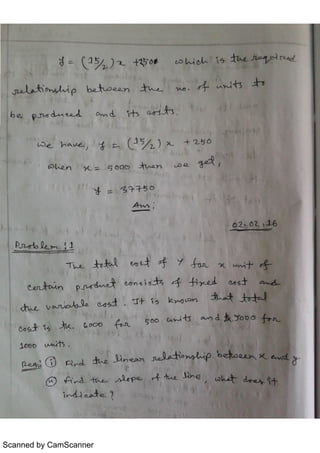 y = (15/2)x + 250 which is the required
relationship between the no. of units to
be produced and its costs.
We have, y = (15/2) x + 250
When x = 5000 then we get,
y = 37750
Ans:
02.02.16
Problem: 1
The total cost of Y for x unit of
certain product consists of fixed cost and
the variable cost. It is known that total
cost is tk. 6000 for 500 units and tk 7000 for
1000 units.
Req: (i) Find the linear relationship between x and y
(ii) Find the slope of the line, what does it
indicate?
Scanned by CamScanner